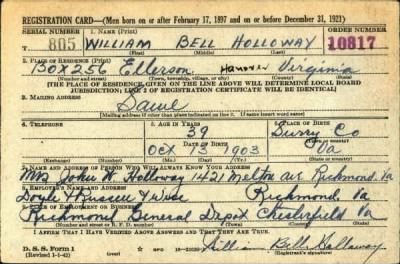 REGISTRATION CARD—(Men born on or after February 17, 1897 and on or before December 31, 1921)
SERIAL NUMBER 1. NAME (Print) ORDER NUMBER
T 805 WILLIAM BELL HOLLOWAY 10817
(First) (Middle) (Last)
2. PLACE OF RESIDENCE (Print)
BOX 256 Ellerson Hanover Virginia
(Number and street) (Town, township, village, or city) (County) (State)
[THE PLACE OF RESIDENCE GIVEN ON THE LINE ABOVE WILL DETERMINE LOCAL BOARD
JURISDICTION; LINE 2 OF REGISTRATION CERTIFICATE WILL BE IDENTICAL]
3. MAILING ADDRESS
Same
(Mailing address if other than place indicated on line 2. If same insert word same)
4. TELEPHONE 5. AGE IN YEARS 6. PLACE OF BIRTH
39 Surry Co
DATE OF BIRTH
Oct 13 1903 Va
(Exchange) (Number) (Mo.) (Day) (Yr.) (State or country)
7. NAME AND ADDRESS OF PERSON WHO WILL ALWAYS KNOW YOUR ADDRESS
Mrs John W. Holloway 1421 Melton Ave Richmond Va
8. EMPLOYER'S NAME AND ADDRESS
Doyle & Russell & Wise Richmond, Va
9. PLACE OF EMPLOYMENT OR BUSINESS
Richmond General Depot Chesterfield Va
(Number and street or R. F. D. number) (Town) (County) (State)
I AFFIRM THAT I HAVE VERIFIED ABOVE ANSWERS AND THAT THEY ARE TRUE.
D. S. S. Form 1
(Revised 1-1-42) GPO William Bell Holloway
(Registrant's signature)